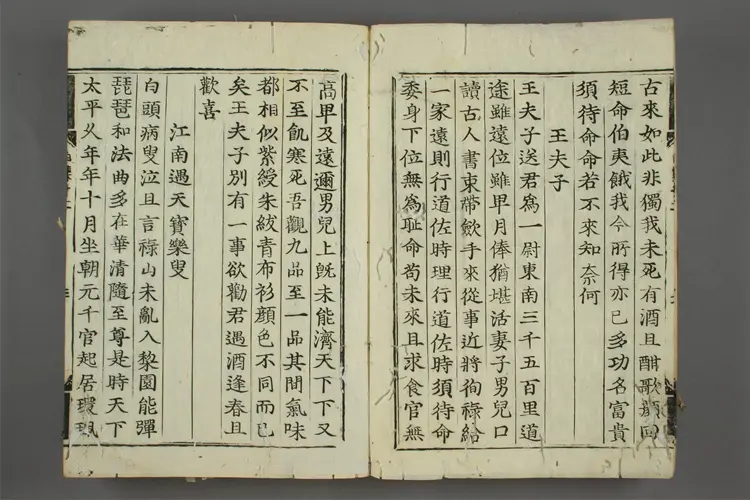 古來如此非獨我未死有酒且酣歌顔回
短命伯夷餓我今所得亦已多功名富貴
須待命命若不來知奈何
王夫子
王夫子送君爲一尉東南三千五百里道
途雖遠位雖卑月俸猶堪活妻子男兒口
讀古人書束帶斂手來從事近將徇祿給
一家遠則行道佐時理行道佐時須待命
委身下位無爲耻命苟未來且求食官無
高卑及遠邇男兒上旣未能濟天下下又
不至飢寒死吾觀九品至一品其間氣味
都相似紫綬朱紱青布衫顔色不同而已
矣王夫子別有一事欲勸君遇酒逢春且
歡喜
江南遇天寶樂叟
白頭病叟泣且言祿山未亂入黎園能彈
琵琶和法曲多在華清隨至尊是時天下
太平乆年年十月坐朝元千官起居環珮